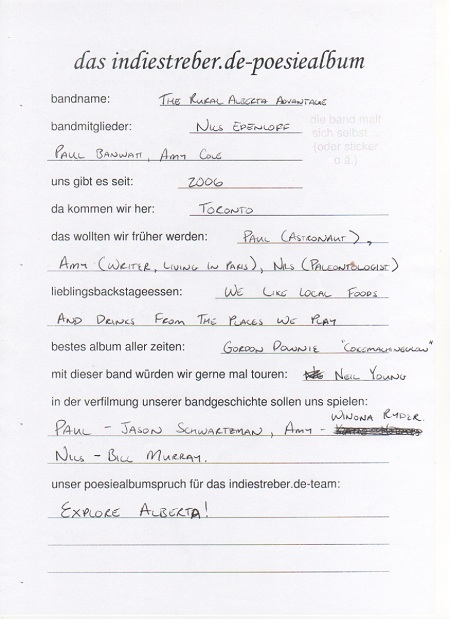 das indiestreber.de-poesiealbum
bandname: THE RURAL ALBERTA ADVANTAGE
bandmitglieder: NILS EDENLOFF
PAUL BANWATT, AMY COLE
die band malt
sich selbst...
(oder sticker
o.ä.)
uns gibt es seit: 2006
da kommen wir her: TORONTO
das wollten wir früher werden: PAUL (ASTRONAUT),
AMY (WRITER, LIVING IN PARIS), NILS (PALEONTOLOGIST)
lieblingsbackstageessen: WE LIKE LOCAL FOODS
AND DRINKS FROM THE PLACES WE PLAY
bestes album aller zeiten: GORDON DOWNIE "COKEMACHINEGLOW"
mit dieser band würden wir gerne mal touren: NEIL YOUNG
in der verfilmung unserer bandgeschichte sollen uns spielen:
PAUL - JASON SCHWARTZMAN, AMY - WINONA RYDER.
NILS - BILL MURRAY.
unser poesiealbumspruch für das indiestreber.de-team:
EXPLORE ALBERTA!